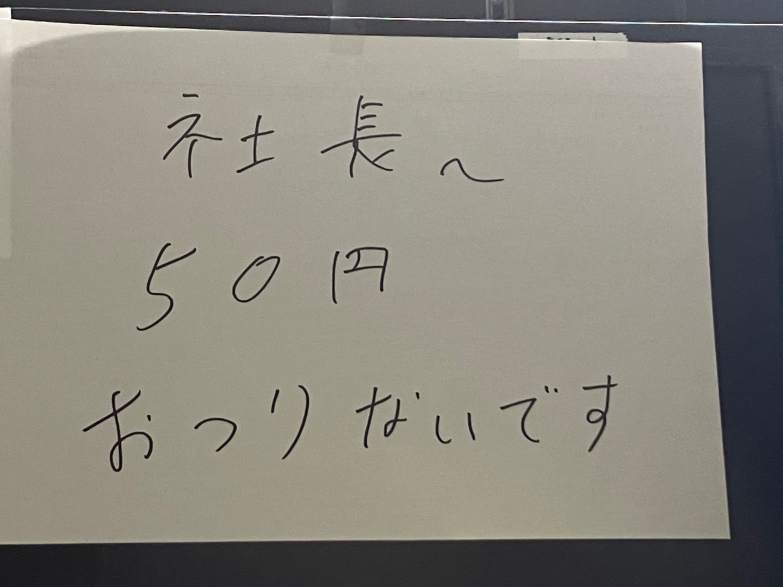 社長～
50円
おつりないです